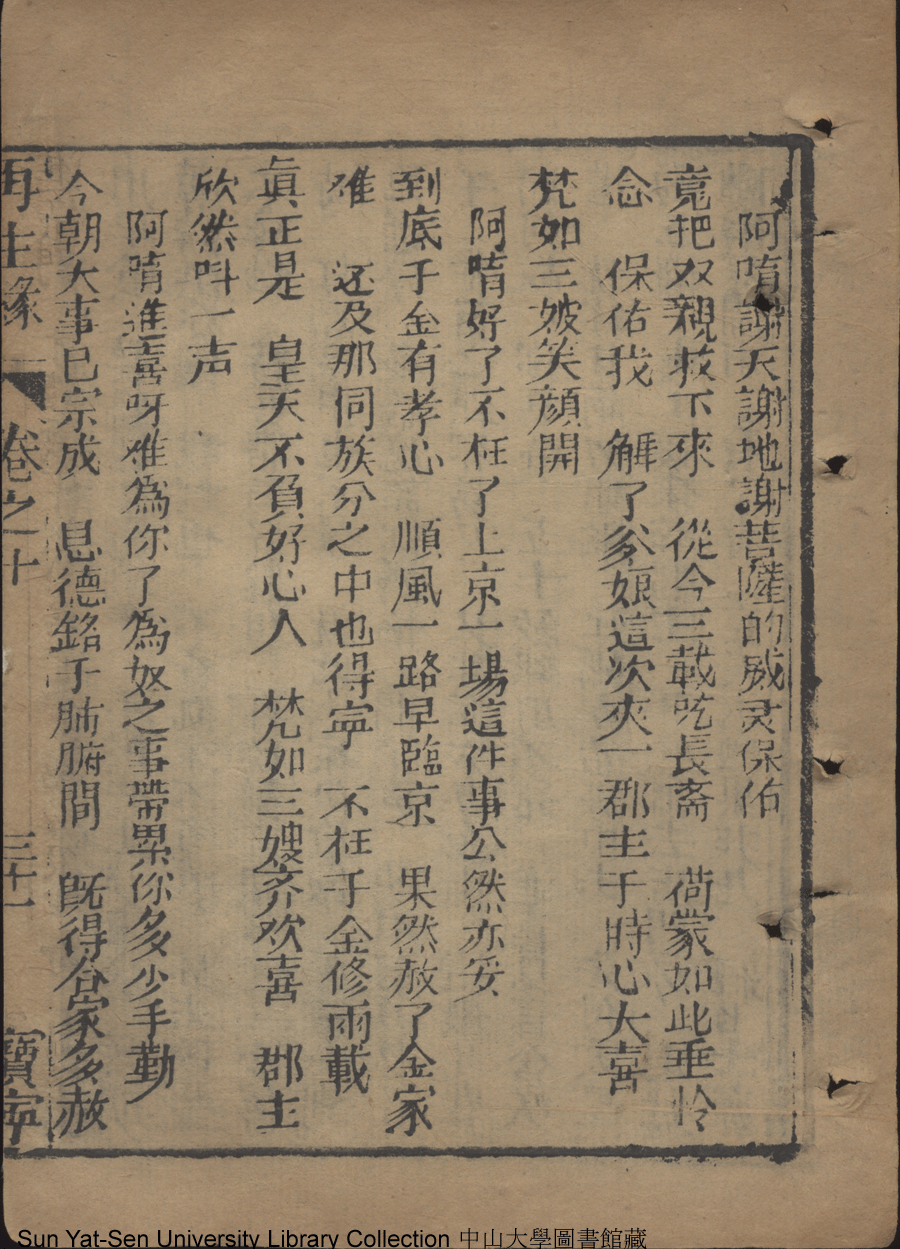 阿唷謝天謝地謝菩薩的威灵保佑
竟把双親救下來　從今三載吃長斋　荷蒙如此垂怜
念　保佑我　解了爹娘這次灾　郡主于時心大喜
梵如三嫂笑顔開
阿唷好了不枉了上京一場這件事公然亦妥
到底千金有孝心　順風一路早臨京　果然赦了全家
难　还及那同族分之中也得寕　不枉千金修兩載
眞正是　皇天不負好心人　梵如三嫂齐欢喜　郡主
欣然呌一声
阿唷進喜呀难為你了為奴之事帶累你多少手勤
今朝大事已宗成　恩德銘于肺腑間　旣得合家多赦
再生緣　卷之十　三十一　寶寕
Sun Yat-Sen University Library Collection 中山大學圖書館藏